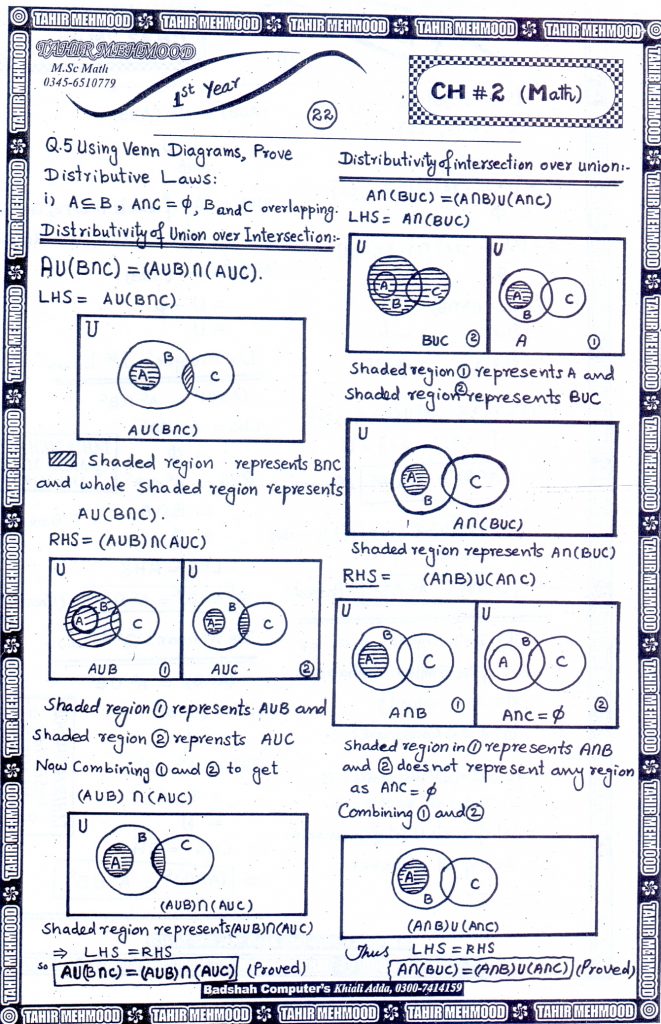 TAHIR MEHMOOD TAHIR MEHMOOD TAHIR MEHMOOD TAHIR MEHMOOD TAHIR MEHMOOD
TAHIR MEHMOOD
M.Sc Math
0345-6510779
1st Year
22
CH # 2 (Math)
Q.5 Using Venn Diagrams, Prove
Distributive Laws:
i) A⊆B, A∩C = ϕ, B and C overlapping.
Distributivity of Union over Intersection:-
A∪(B∩C) = (A∪B)∩(A∪C).
LHS = A∪(B∩C)
U
A B C
A∪(B∩C)
Shaded region represents B∩C
and whole shaded region represents
A∪(B∩C).
RHS = (A∪B)∩(A∪C)
U U
A B C A B C
A∪B ① A∪C ②
Shaded region ① represents A∪B and
Shaded region ② reprensts A∪C
Now Combining ① and ② to get
(A∪B) ∩(A∪C)
U
A B C
(A∪B)∩(A∪C)
Shaded region represents(A∪B)∩(A∪C)
⇒ LHS = RHS
so A∪(B∩C) = (A∪B)∩(A∪C) (Proved)
Distributivity of intersection over union:-
A∩(B∪C) = (A∩B)∪(A∩C)
LHS = A∩(B∪C)
U U
A B C A B C
B∪C ② A ①
Shaded region ① represents A and
Shaded region ② represents B∪C
U
A B C
A∩(B∪C)
Shaded region represents A∩(B∪C)
RHS = (A∩B)∪(A∩C)
U U
A B C A B C
A∩B ① A∩C = ϕ ②
Shaded region in ① represents A∩B
and ② does not represent any region
as A∩C = ϕ
Combining ① and ②
A B C
(A∩B)∪(A∩C)
Thus LHS = RHS
A∩(B∪C) = (A∩B)∪(A∩C) (Proved)
Badshah Computer's Khiali Adda, 0300-7414159
TAHIR MEHMOOD TAHIR MEHMOOD TAHIR MEHMOOD TAHIR MEHMOOD TAHIR MEHMOOD